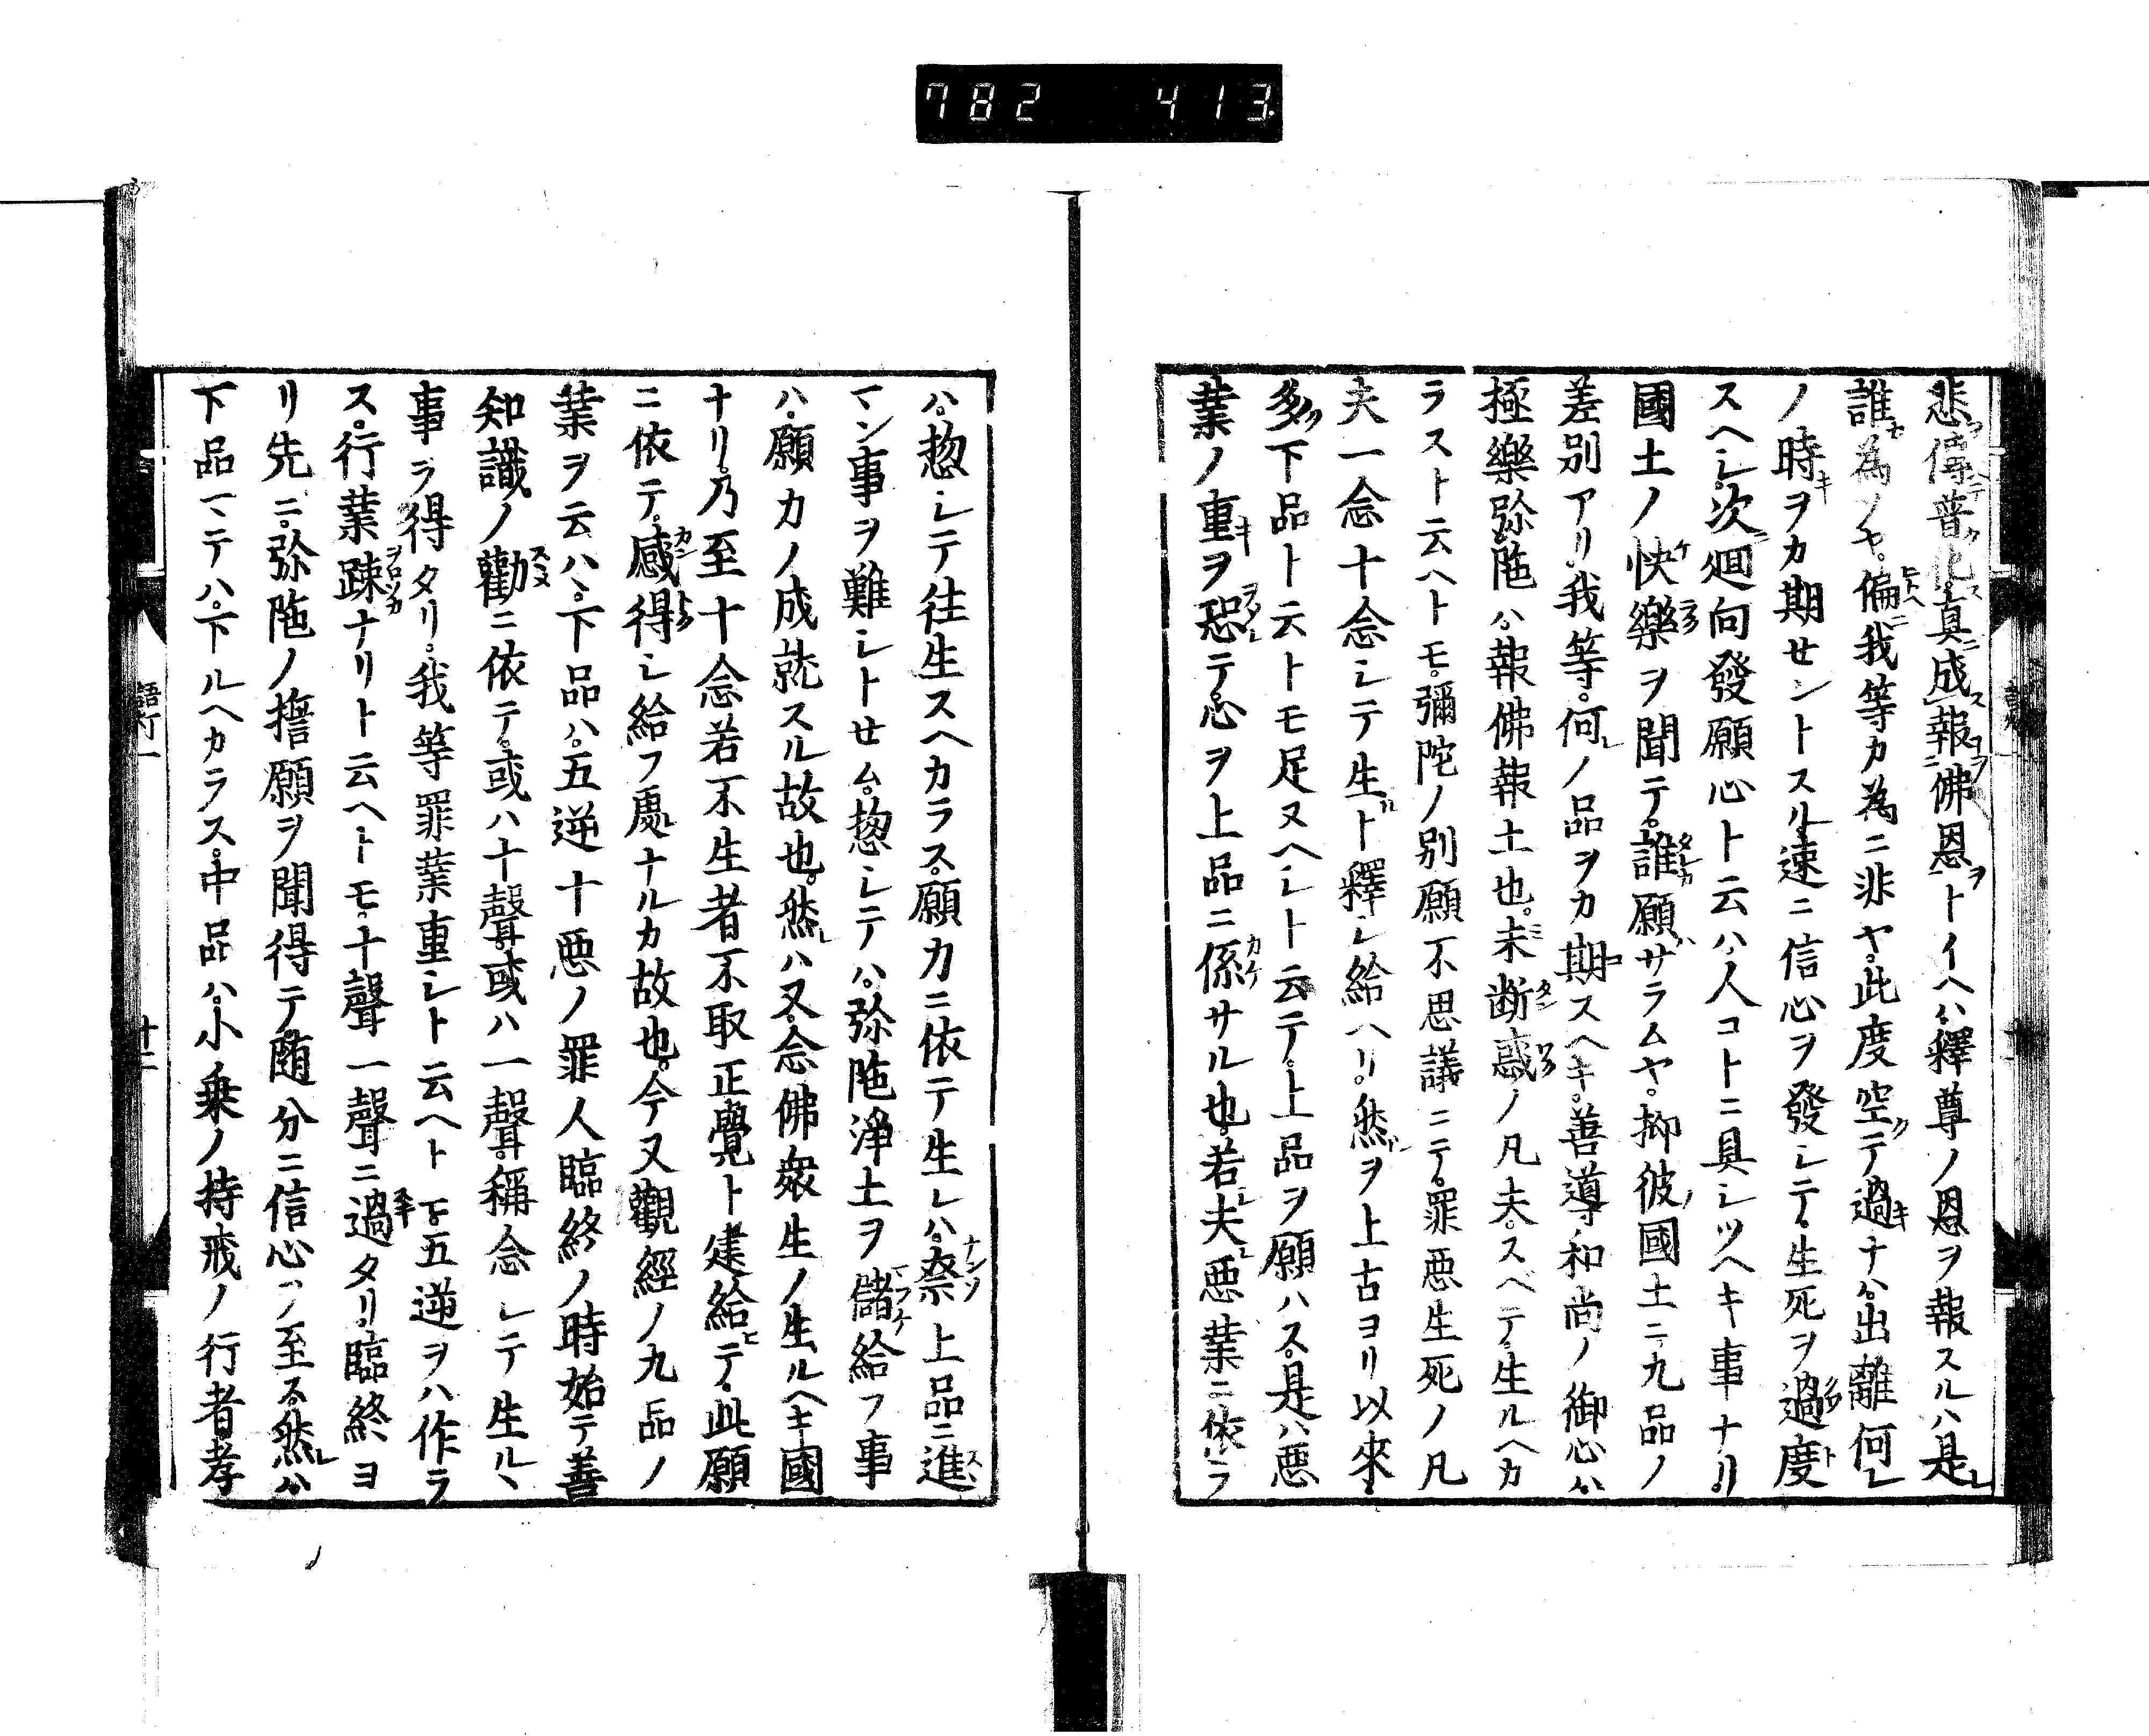 782 413
悲傳普化真成報佛恩トイヘハ釋尊ノ恩ヲ報スルハ是レ
誰為ノヤ偏我等カ為ニ非ヤ此度空テ過ナハ出離何レ
ノ時ヲカ期セントスル速ニ信心ヲ發シテ生死ヲ過度
スヘシ次廻向發願心ト云ハ人コトニ具シツヘキ事ナリ
國土ノ快樂ヲ聞テ誰願サラムヤ抑彼國土ニ九品ノ
差別アリ我等何ノ品ヲカ期スヘキ善導和尚ノ御心ハ
極樂弥陁ハ報佛報土也未断惑ノ凡夫スヘテ生ルヘカ
ラスト云ヘトモ彌陀ノ別願不思議ニテ罪悪生死ノ凡
夫一念十念シテ生ト釋シ給ヘリ然ヲ上古ヨリ以來
多下品ト云トモ足ヌヘシト云テ上品ヲ願ハス是ハ悪
業ノ重ヲ恐テ心ヲ上品ニ係サル也若夫悪業ニ依ラ
ハ惣シテ往生スヘカラス願力ニ依テ生レハ奈上品ニ進
マン事ヲ難シトせム惣シテハ弥陁浄土ヲ儲給フ事
ハ願力ノ成就スル故也然ハ又念佛衆生ノ生ルヘキ國
ナリ乃至十念若不生者不取正覺ト建給テ此願
ニ依テ感得シ給フ處ナルカ故也今又觀經ノ九品ノ
業ヲ云ハ下品ハ五逆十悪ノ罪人臨終ノ時始テ善
知識ノ勸ニ依テ或ハ十聲或ハ一聲稱念シテ生ルヽ
事ヲ得タリ我等罪業重シト云ヘトモ五逆ヲハ作ラ
ス行業踈ナリト云ヘトモ十聲一聲ニ過タリ臨終ヨ
リ先ニ弥陁ノ擔願ヲ聞得テ随分ニ信心ヲ至ス然ハ
下品マテハ下ルヘカラス中品ハ小乗ノ持戒ノ行者孝
語灯一
十二